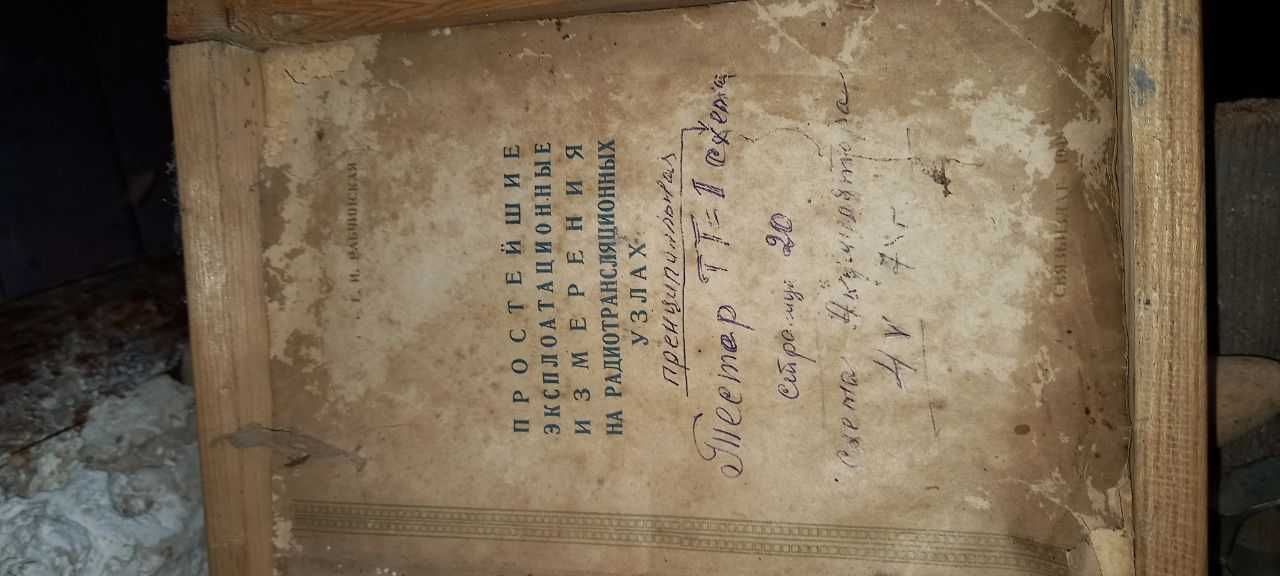 ПРОСТЕЙШИЕ
ЭКСПЛОАТАЦИОННЫЕ
ИЗМЕРЕНИЯ
НА РАДИОТРАНСЛЯЦИОННЫХ
УЗЛАХ
пренципиальная
Тестер ТТ=1 схема
20
схема Акумулятора
4 V
СВЯЗЬИЗДАТ